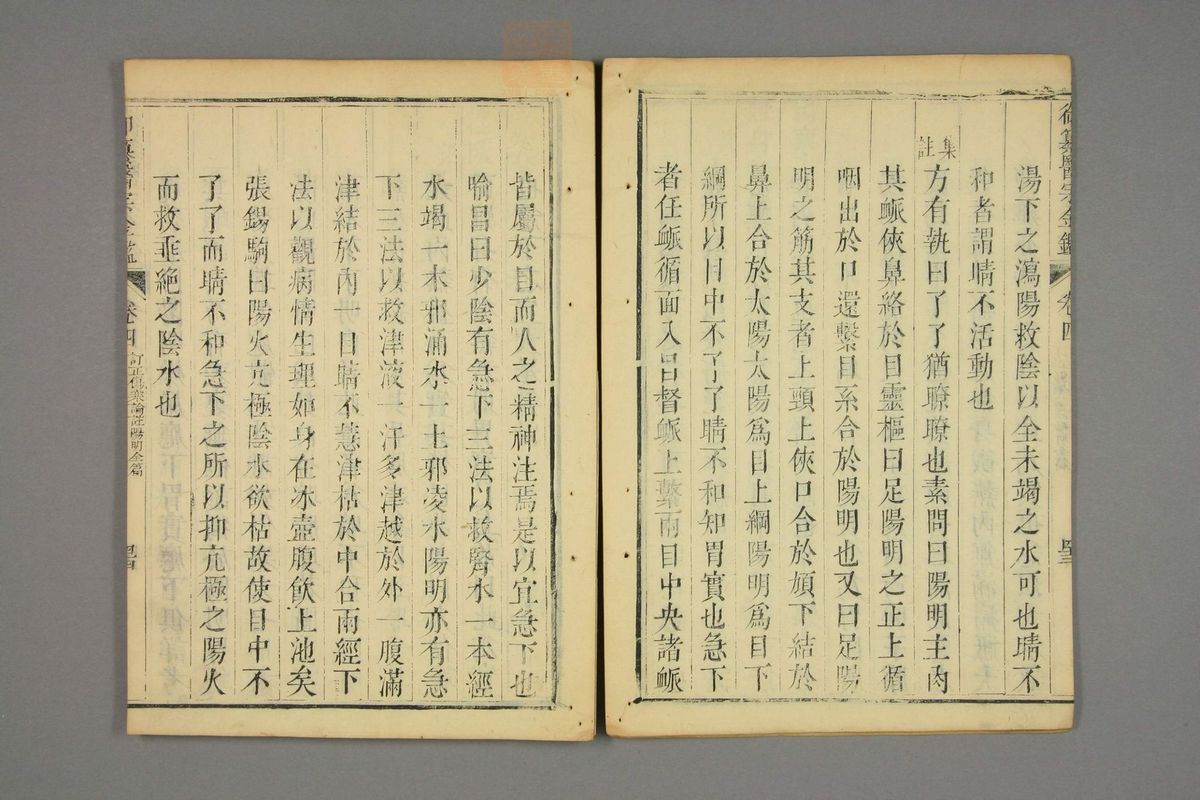 御纂醫宗金鑑 卷四
湯下之瀉陽救陰以全未竭之水可也睛不
和者謂睛不活動也
集註
方有執曰了了猶瞭瞭也素問曰陽明主肉
其脈俠鼻絡於目靈樞曰足陽明之正上循
咽出於口還繫目系合於陽明也又曰足陽
明之筋其支者上頸上俠口合於頄下結於
鼻上合於太陽太陽爲目上綱陽明爲目下
綱所以目中不了了睛不和知胃實也急下
者任脈循面入目督脈上繫兩目中央諸脈
皆屬於目而人之精神注焉是以宜急下也
喻昌曰少陰有急下三法以救腎水一本經
水竭一木邪涌水一土邪凌水陽明亦有急
下三法以救津液一汗多津越於外一腹滿
津結於內一目睛不慧津枯於中合兩經下
法以觀病情生理如身在冰壺腹飮上池矣
張錫駒曰陽火亢極陰水欲枯故使目中不
了了而睛不和急下之所以抑亢極之陽火
而救垂絕之陰水也
御纂醫宗金鑑 卷四 訂正傷寒論註陽明全篇